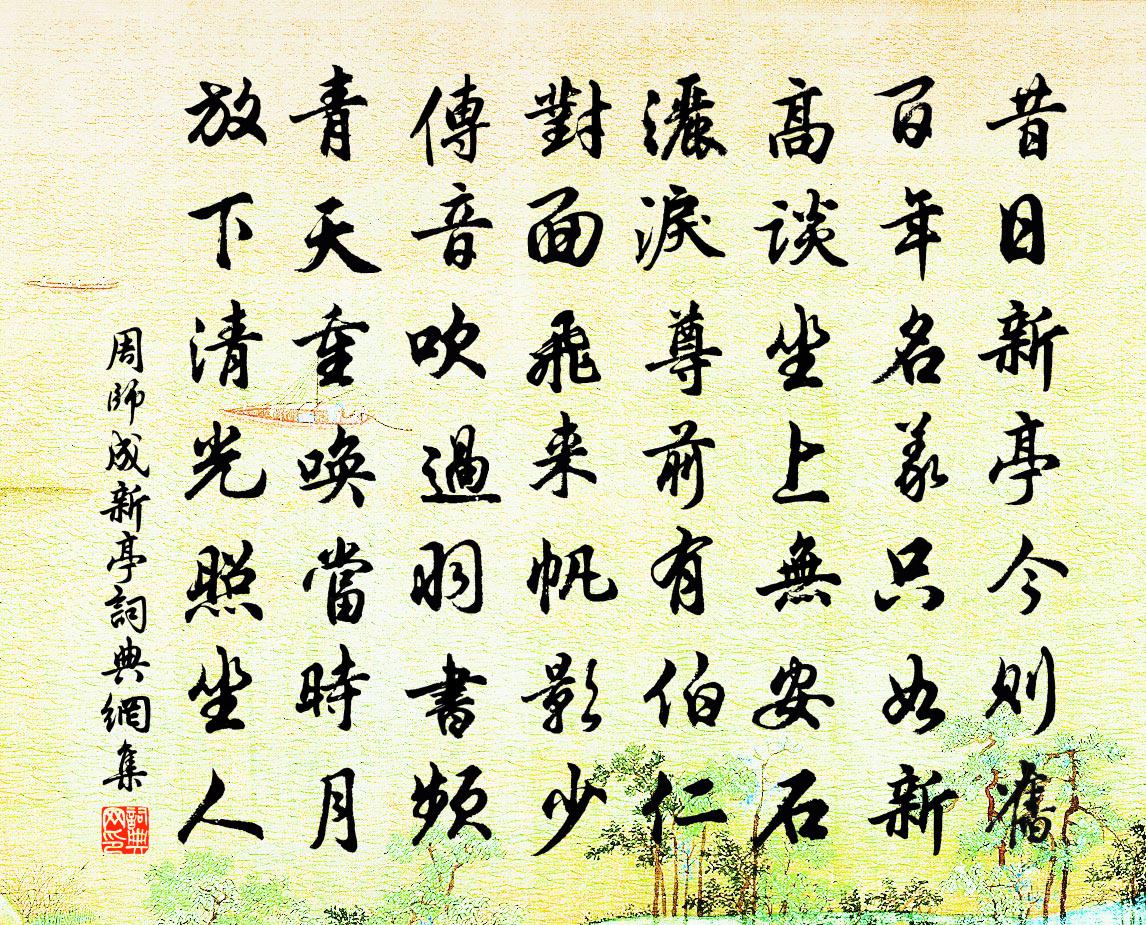 昔日新亭今則舊
百年名義只如新
高談坐上無安石
灑淚尊前有伯仁
對面飛来帆影少
傳音吹過羽書頻
青天重喚當時月
放下清光照坐人
周師成新亭詞典網集
詞典网印